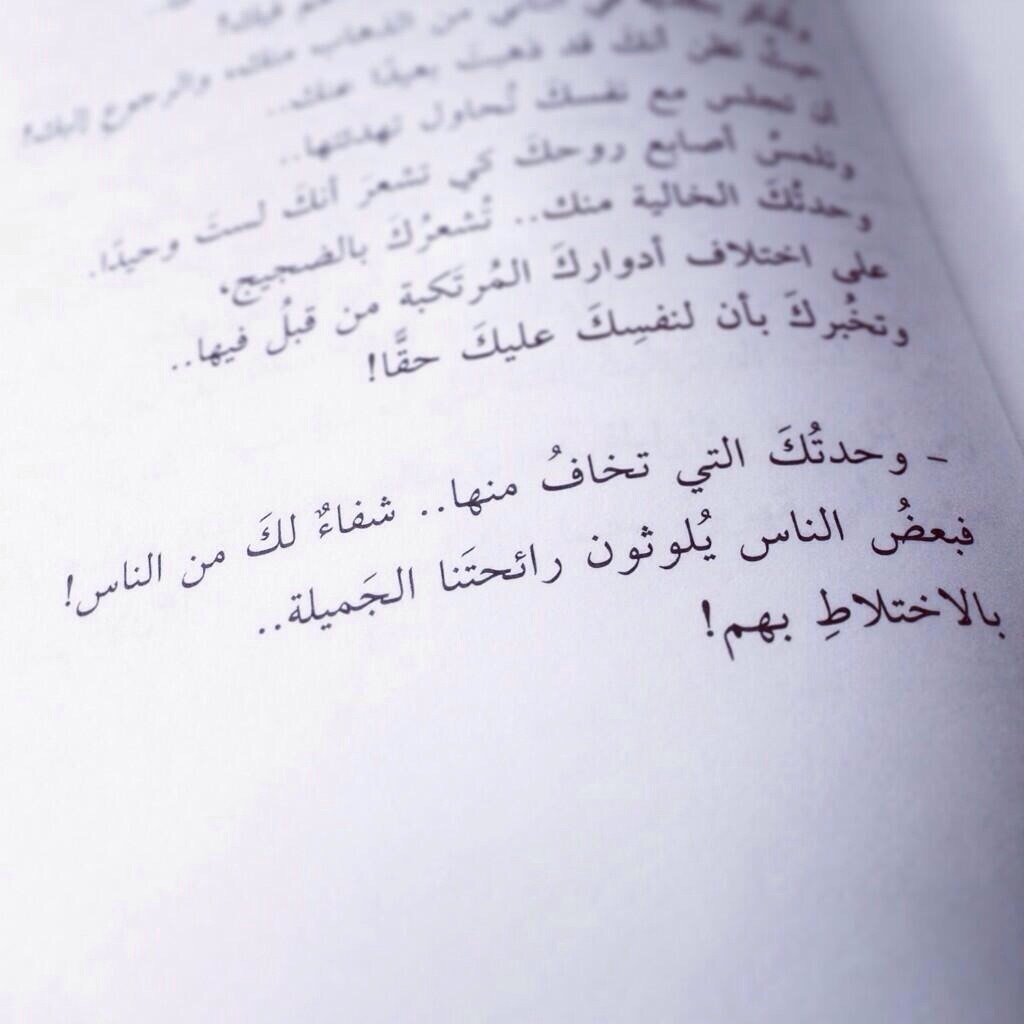 من الذهاب منك، والرجوع إليك!
حيثُ تظن أنكَ قد ذهبتَ بعيدًا عنك..
أن تجلس مع نفسكَ تُحاول تهدئتها..
وتلمسُ أصابع روحكَ كي تشعرَ أنكَ لستَ وحيدًا.
وحدتُكَ الخالية منك.. تُشعرُكَ بالضجيج.
على اختلاف أدواركَ المُرتَكبة من قبلُ فيها..
وتخُبركَ بأن لنفسِكَ عليكَ حقًّا!
- وحدتُكَ التي تخافُ منها.. شفاءٌ لكَ من الناس!
فبعضُ الناس يُلوثون رائحتَنا الجَميلة..
بالاختلاطِ بهم!